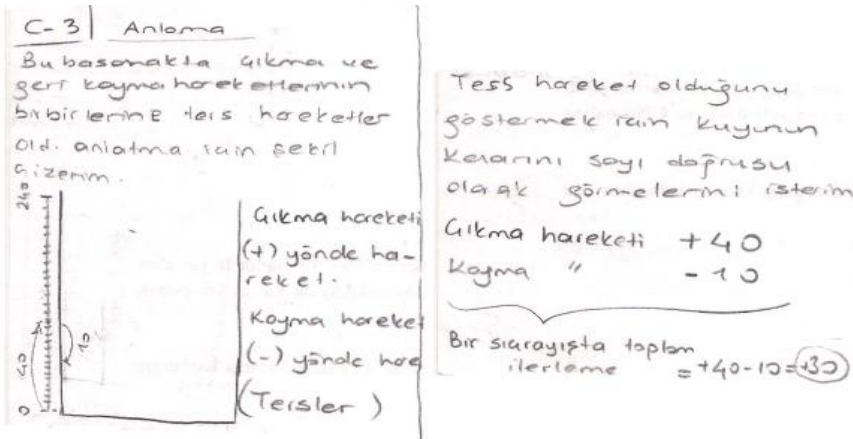 C-3 | Anlama
Bu basamakta Çıkma ve
geri kayma hareketlerinin
birbirlerine ters hareketler
old. anlatma için şekil
çizerim.
240
40
10
0
Çıkma hareketi
(+) yönde ha-
reket.
Kayma hareket
(-) yönde hare
(Tersler)
Ters hareket olduğunu
göstermek için kuyunun
kenarını sayı doğrusu
olarak görmelerini isterim
Çıkma hareketi +40
Kayma " -10
Bir sıçrayışta toplam
ilerleme = +40-10=+30